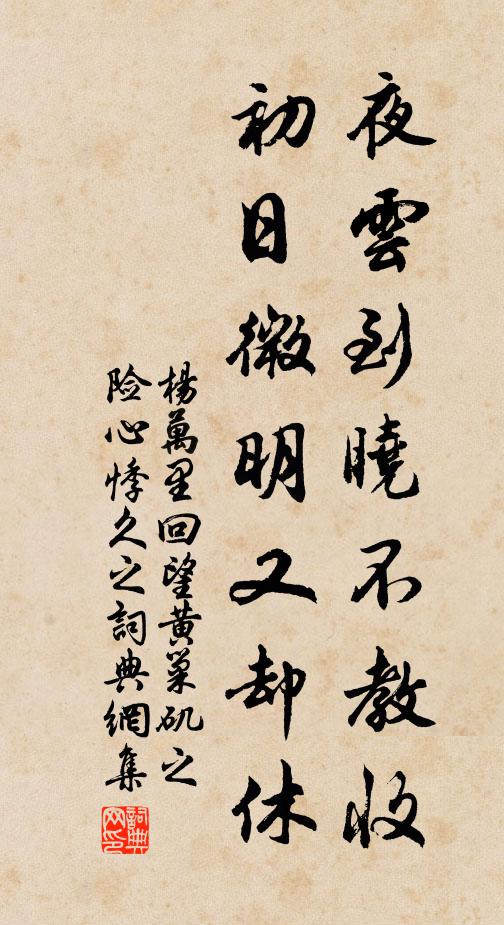 夜雲到曉不教收
初日微明又却休
楊萬里回望黃巢矶之
险心悸久之詞典網集
詞典网印